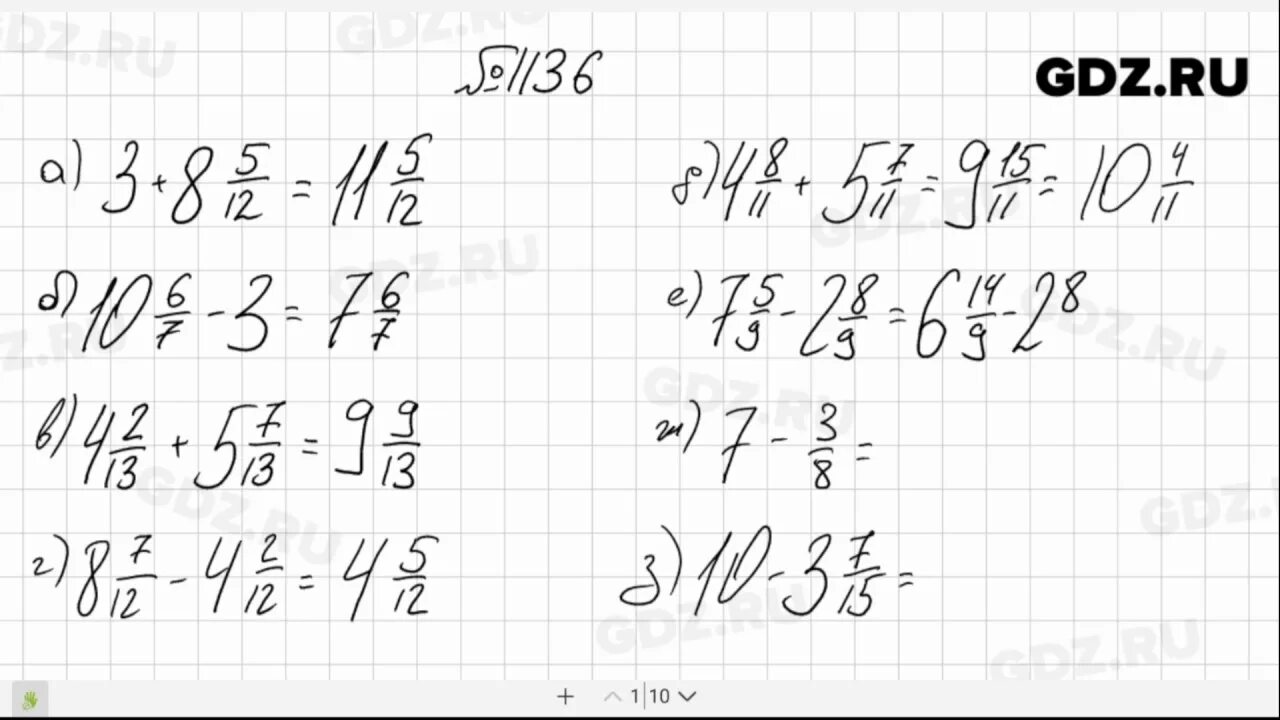 №1136
GDZ.RU
а) 3 + 8 5/12 = 11 5/12
б) 10 6/7 - 3 = 7 6/7
в) 4 2/13 + 5 7/13 = 9 9/13
г) 8 7/12 - 4 2/12 = 4 5/12
д) 4 8/11 + 5 7/11 = 9 15/11 = 10 4/11
е) 7 5/9 - 2 8/9 = 6 14/9 - 2 8
ж) 7 - 3/8 =
з) 10 - 3 7/15 =
1 | 10